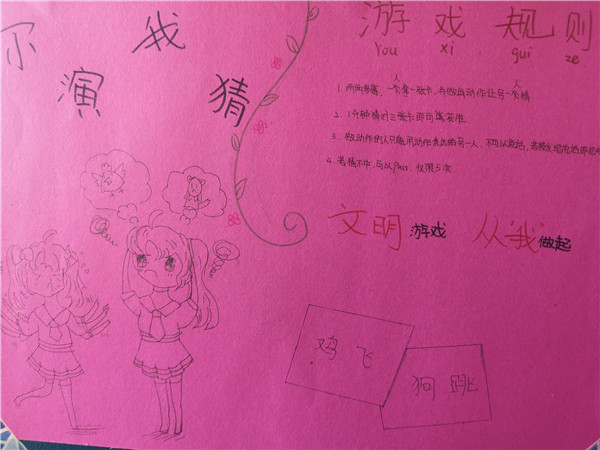 尔 我
演 猜
游戏规则
You xi gui ze
1. 一个人拿一张卡,并做出动作让另一个人猜
2. 1分钟猜对三张卡即可获
3. 做动作的人只能用动作 另一人、不可以说话,若被发现
4. 若猜不中,可以pass,仅限5次
文明游戏 从"我"做起
鸡飞
狗跳